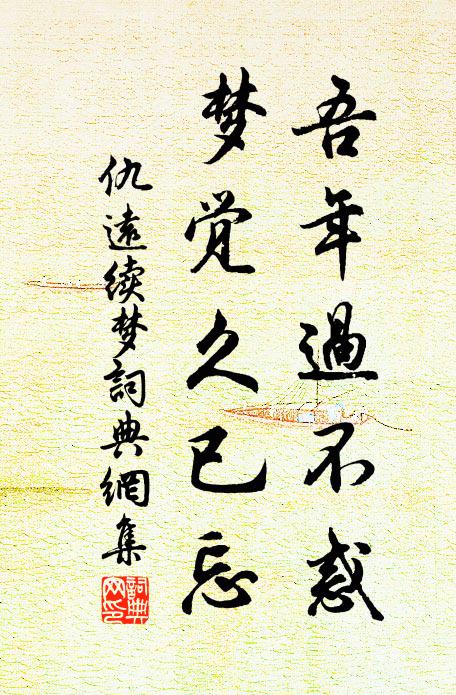 吾年過不惑
梦觉久已忘
仇遠续梦詞典網集
詞典網印